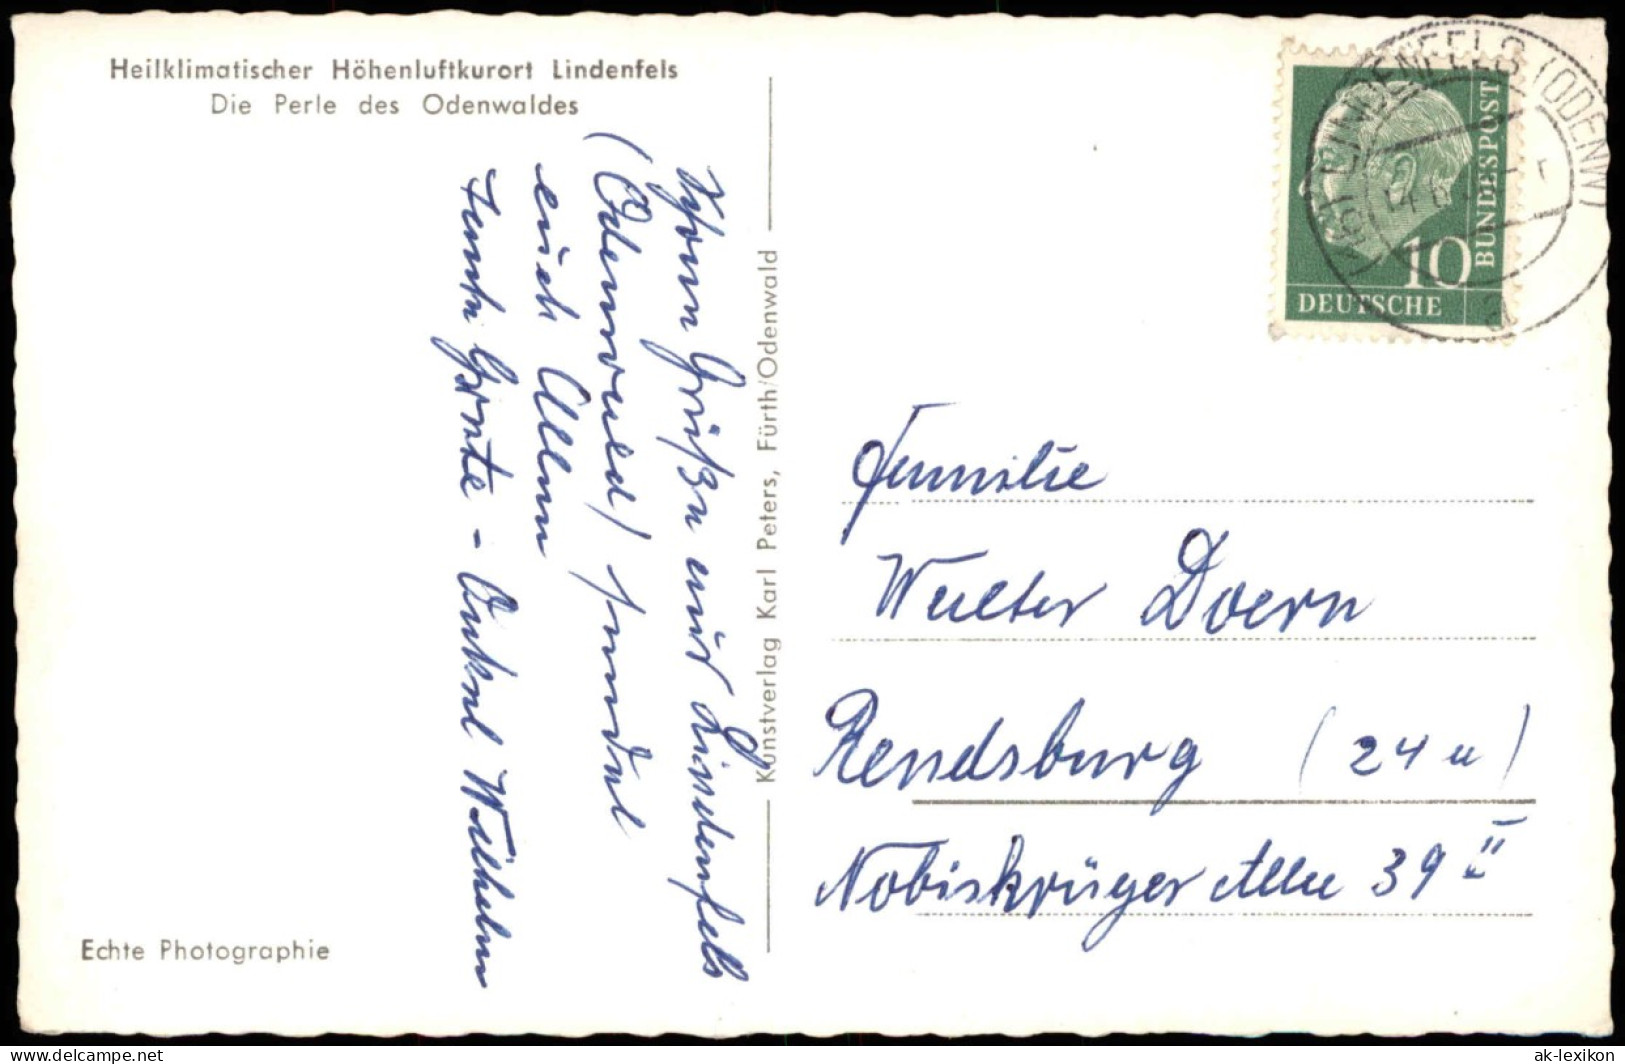 Heilklimatischer Höhenluftkurort Lindenfels
Die Perle des Odenwaldes
Schöne Grüße aus Lindenfels
(Odenwald) sendet
euch Allen
Tante Grete - Onkel Wilhelm
Echte Photographie
Kunstverlag Karl Peters, Fürth/Odenwald
LINDENFELS (ODENW)
a
10
DEUTSCHE
BUNDESPOST
Familie
Walter Doern
Rendsburg (24a)
Nobiskrüger Allee 39 II
ak-lexikon